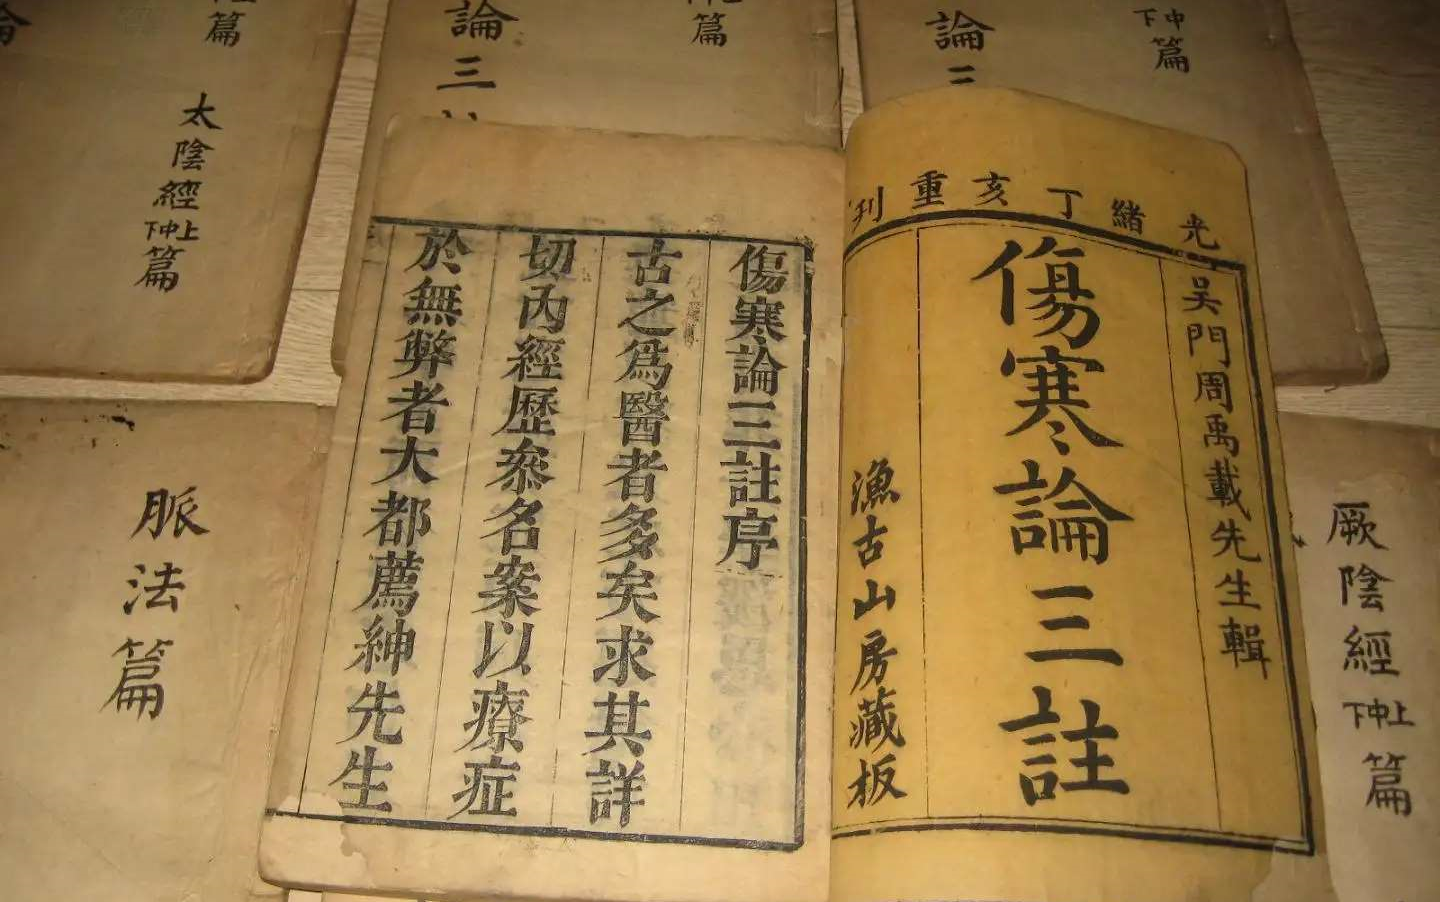 光緒丁亥重刊
吳門周禹載先生輯
傷寒論三註
漁古山房藏板
傷寒論三註序
古之爲醫者多矣求其詳
切內經歷叅名案以療症
於無弊者大都薦紳先生
厥陰經上中下篇
中下篇
論三
篇
論三
篇
太陰經上中下篇
論
脈法篇